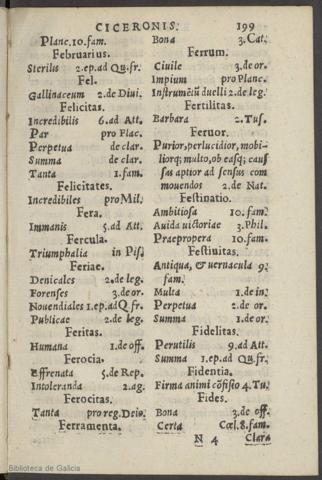 CICERONIS. 199
Planc. 10. fam.
Februarius.
Sterilis 2. ep. ad Qu. fr.
Fel.
Gallinaceum 2. de Diui.
Felicitas.
Incredibilis 6. ad Att.
Par pro Flac.
Perpetua de clar.
Summa de clar.
Tanta 1. fam.
Felicitates.
Incredibiles pro Mil.
Fera.
Immanis 5. ad Att.
Fercula.
Triumphalia in Pis.
Feriae.
Denicales 2. de leg.
Forenses 3. de or.
Nouendiales 1. ep. ad Q. fr.
Publicae 2. de leg.
Feritas.
Humana 1. de off.
Ferocia.
Effrenata 5. de Rep.
Intoleranda 2. ag.
Ferocitas.
Tanta pro reg. Deio.
Ferramenta.
Bona 3. Cat.
Ferrum.
Ciuile 3. de or.
Impium pro Planc.
Instrumētū duelli 2. de leg.
Fertilitas.
Barbara 2. Tus.
Feruor.
Purior, perlucidior, mobi-
liorq; multo, ob easq; cauſ
ſas aptior ad ſenſus com
mouendos 2. de Nat.
Feſtinatio.
Ambitioſa 10. fam.
Auida uictoriae 3. Phil.
Praepropera 10. fam.
Feſtiuitas.
Antiqua, & uernacula 9.
fam.
Multa 1. de in.
Perpetua 2. de or.
Summa 1. de or.
Fidelitas.
Perutilis 9. ad Att.
Summa 1. ep. ad Qu. fr.
Fidentia.
Firma animi cōfiſio 4. Tu.
Fides.
Bona 3. de off.
Certa Cœl. 8. fam.
N 4 Clara
Biblioteca de Galicia